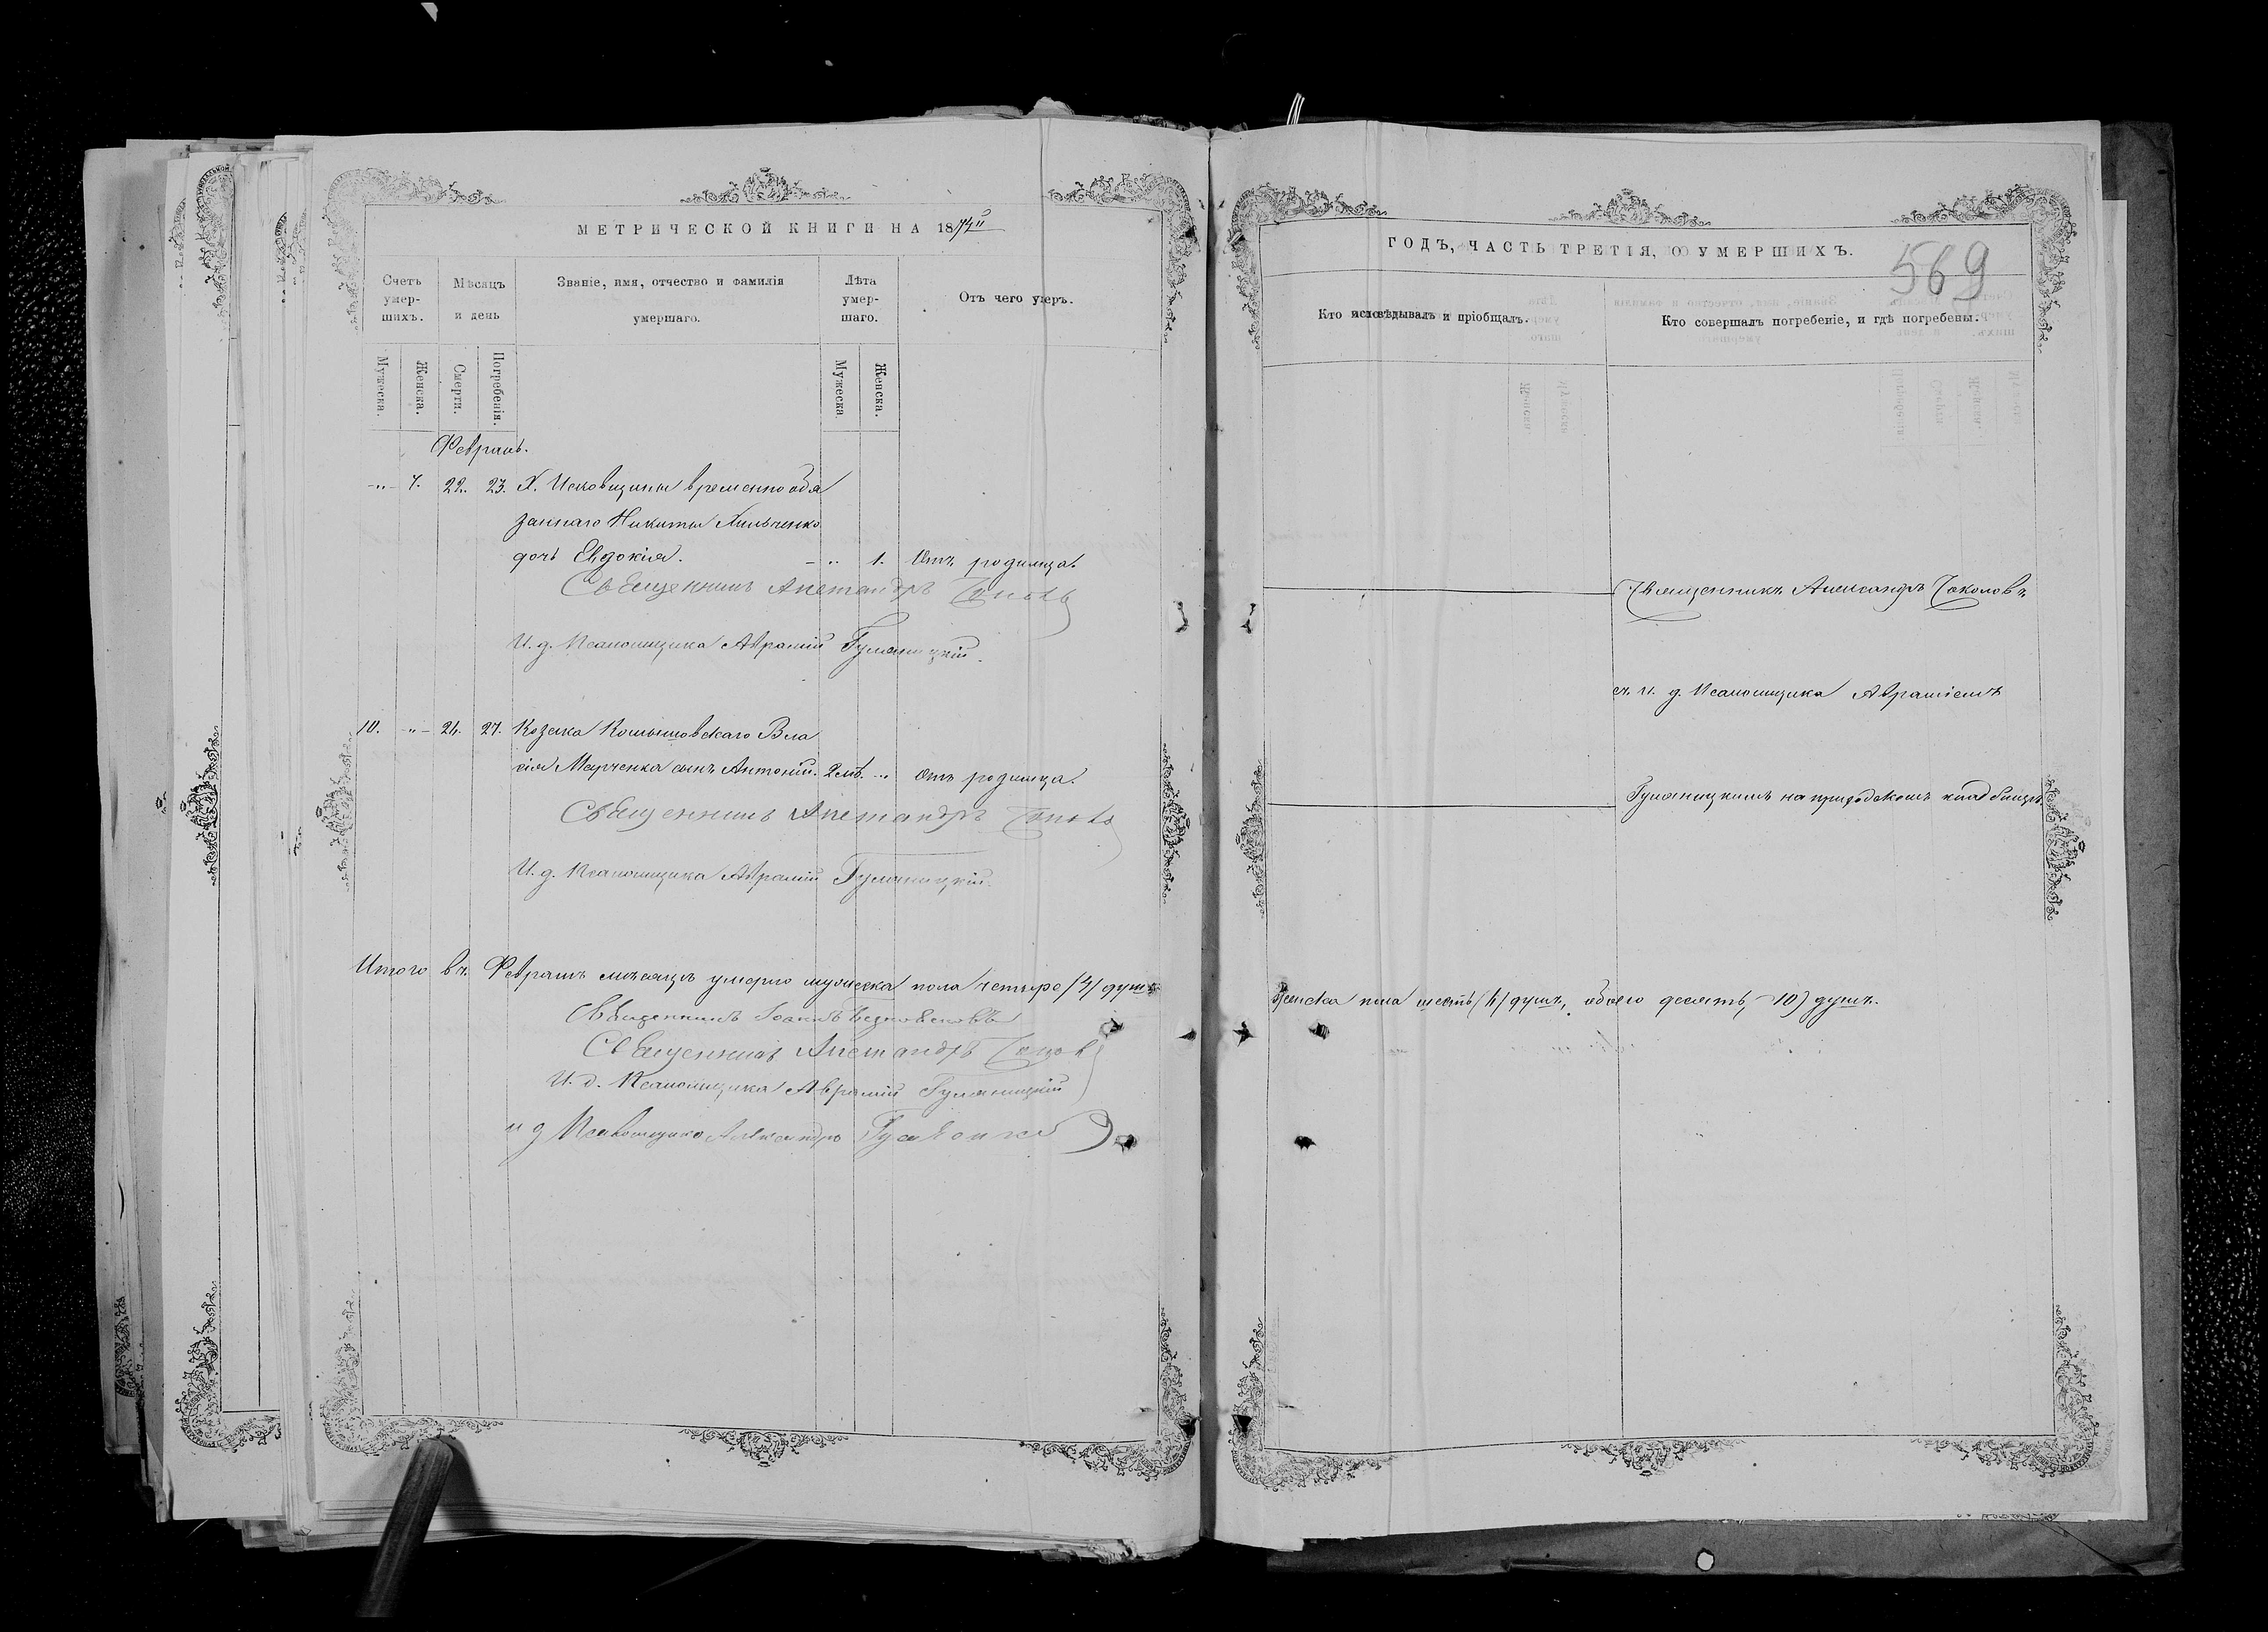 МЕТРИЧЕСКОЙ КНИГИ НА 1874й
Счетъ умер-шихъ.
Мѣсяцъ и день
Званіе, имя, отчество и фамилія умершаго.
Лѣта умер-шаго.
Отъ чего умеръ.
Мужеска.
Женска.
Смерти.
Погребенія.
Мужеска.
Женска.
Февраль.
-"- 7. 22. 23. Х. Исковщины временно обя
заннаго Никиты Хильченко
дочь Евдокія. -"- 1. Отъ родимца.
Священникъ Александръ
И. д. Псаломщика Аврамій Гуманицкій.
10. -"- 26. 27. Козака Комышовскаго Вла
сія Марченка сынъ Антоній. 2 мѣ. -"- Отъ родимца.
Священникъ Александръ
И. д. Псаломщика Аврамій Гуманицкій.
Итого въ Февралѣ мѣсяцѣ умерло мужеска пола четыре /4/ душъ
Священникъ Іоаннъ
Священникъ Александръ
И. д. Псаломщика Аврамій Гуманицкій
и д Псаломщика Александръ
ГОДЪ, ЧАСТЬ ТРЕТІЯ, О УМЕРШИХЪ.
569
Кто исповѣдывалъ и пріобщалъ.
Кто совершалъ погребеніе, и гдѣ погребены.
Священникъ Александръ Соколовъ
съ и. д. Псаломщика Авраміемъ
Гуманицкимъ на приходскомъ кладбищѣ.
женска пола шесть (6) душъ, обоего десять (10) душъ.